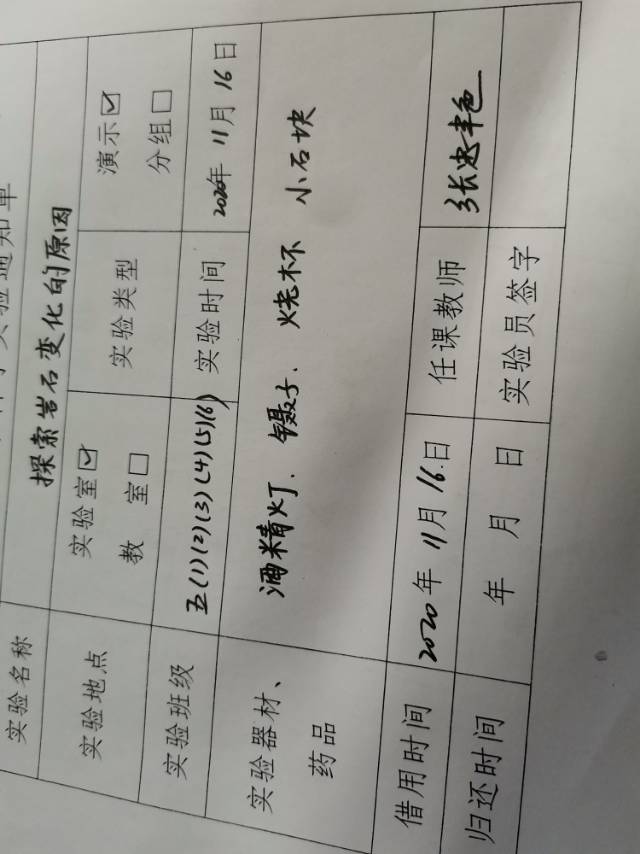 实验通知单
实验名称 探索岩石变化的原因
实验地点 实验室☑ 教 室☐ 实验类型 演示☑ 分组☐
实验班级 五(1)(2)(3)(4)(5)(6) 实验时间 2020年11月16日
实验器材、药品 酒精灯、镊子、烧杯 小石块
借用时间 2020年11月16日 任课教师
归还时间 年 月 日 实验员签字